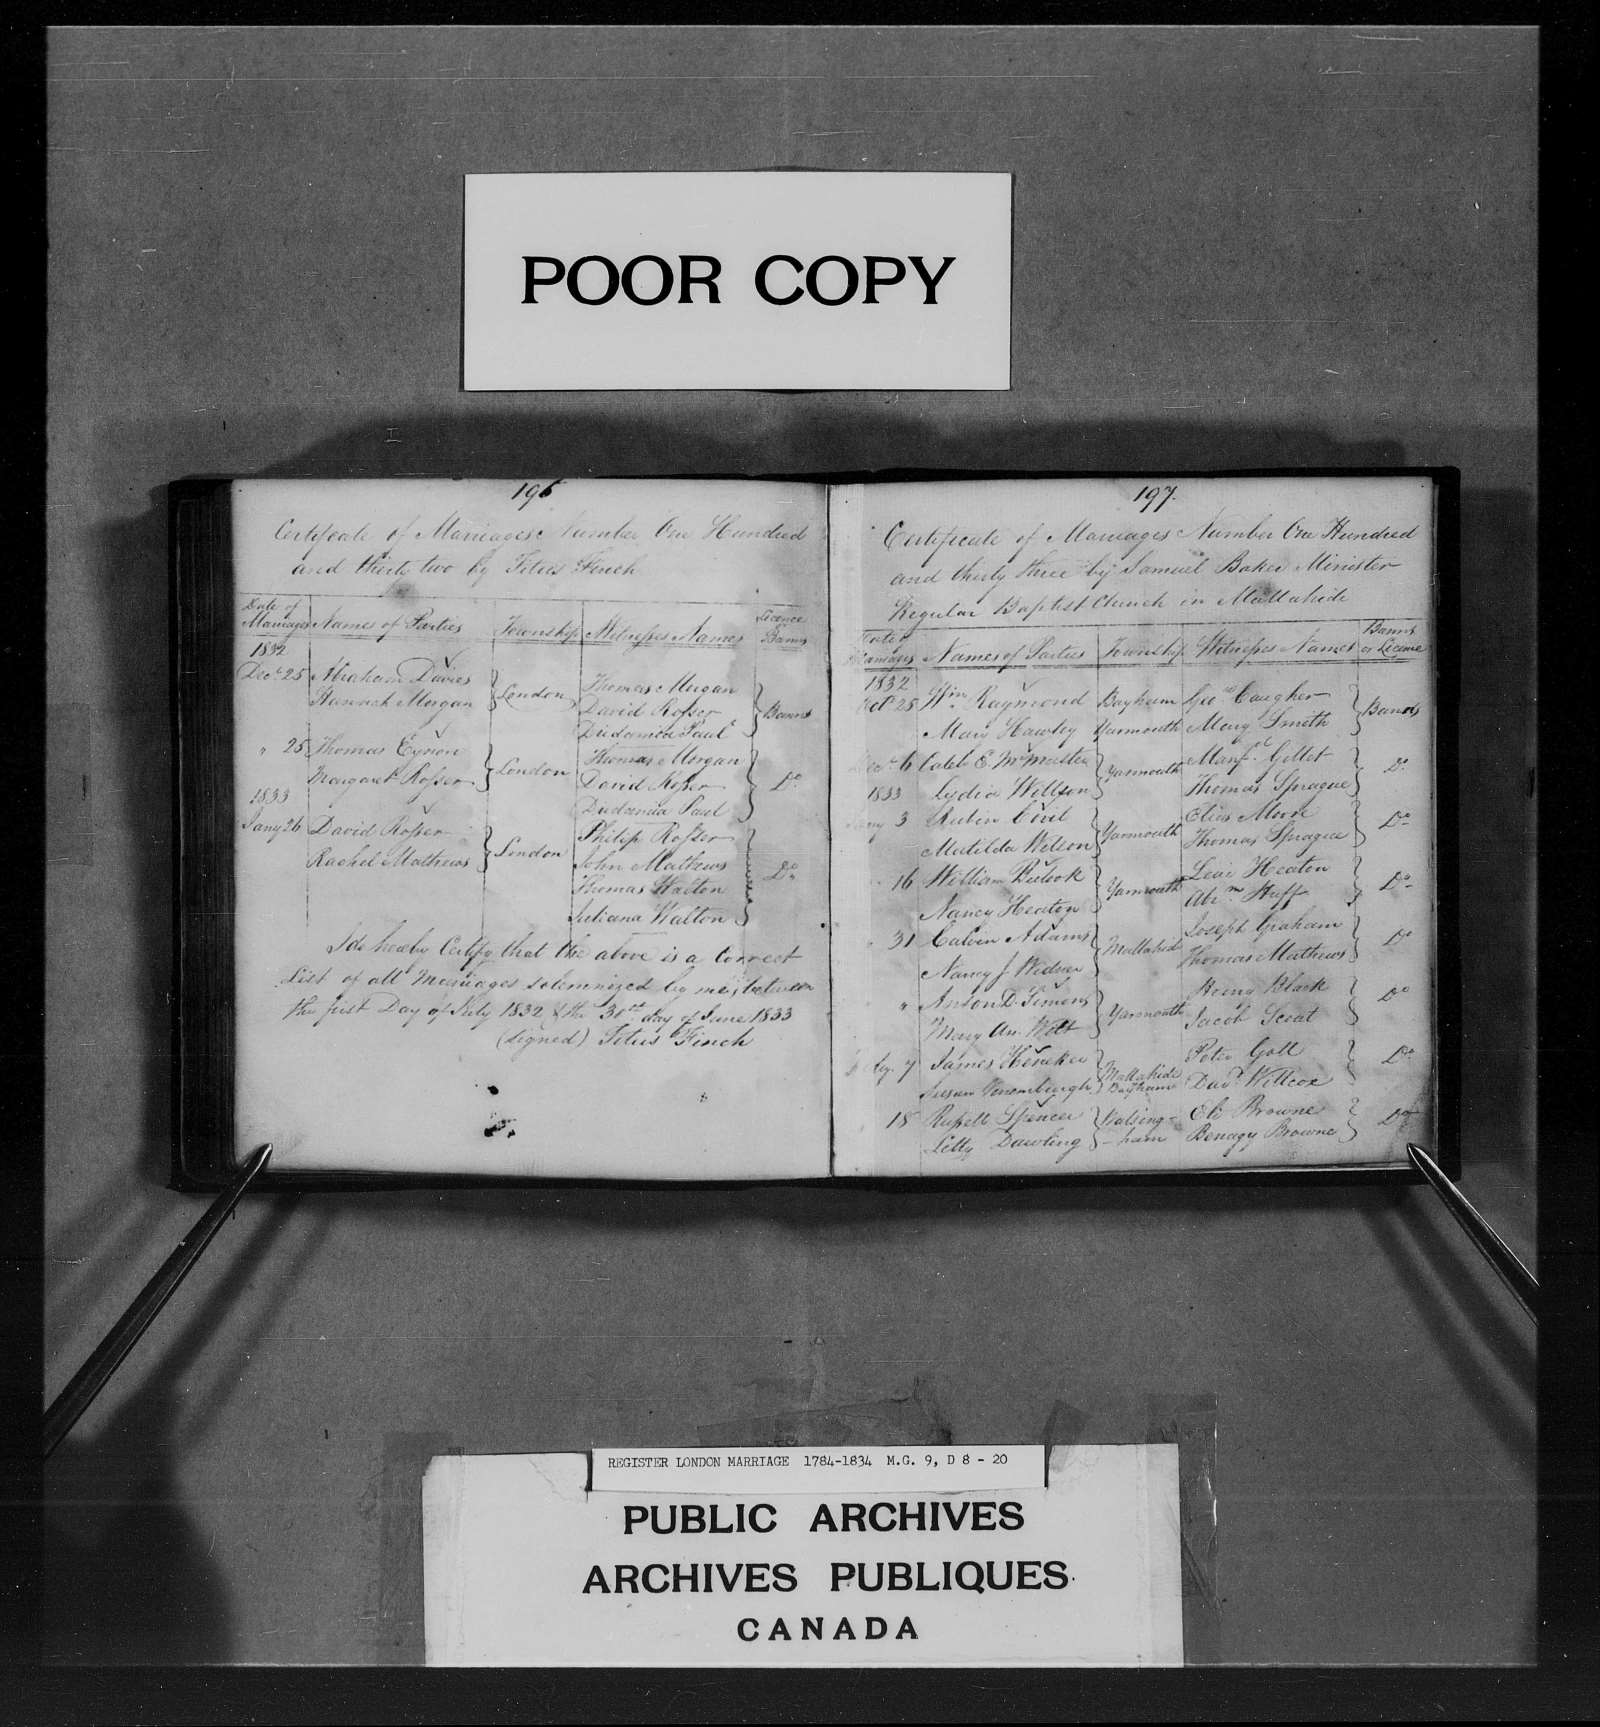 POOR COPY
196
Certificate of Marriages Number One Hundred
and thirty two by Titus Finch
Date of Marriages Names of Parties Township Witnesses Names Licence Banns
1832
Decr 25 Abraham Davies London Thomas Morgan Banns
Hannah Morgan David Rosser
Dudamea Paul
" 25 Thomas Eynon London Thomas Morgan Do
Margaret Rosser David Rosser
1833 Dudamea Paul
Jany 26 David Rosser London Philip Rosser Do
Rachel Mathews John Mathews
Thomas Walton
Juliana Walton
I do hereby Certify that the above is a Correct
List of all Marriages solemnized by me, between
the first Day of July 1832 & the 30th day of June 1833
(signed) Titus Finch
197.
Certificate of Marriages Number One Hundred
and thirty three by Samuel Baker Minister
Regular Baptist Church in Mallahide
Date of Marriages Names of Parties Township Witnesses Names Banns or Licence
1832
Octr 28 Wm Raymond Bayham Geo. Caugher Banns
Mary Hawley Yarmouth Mary Smith
Decr 6 Caleb E. McMaster Yarmouth Manf. Gillet Do
1833 Lydia Willson Thomas Sprague
Jany 3 Rubin Covil Yarmouth Elias Moore Do
Matilda Welson Thomas Sprague
16 William Bulook Yarmouth Levi Heaton Do
Nancy Heaton Abrm Huff
" 31 Calvin Adams Mallahide Joseph Graham Do
Nancy J. Widner Thomas Mathews
" Anson D. Simons Yarmouth Henry Black Do
Mary An. Wolt Jacob Scout
7 James Heneker Mallahide Peter Goll Do
Susan Bayham Davd Willcox
18 Russell Spencer Walsing- Eli Browne Do
Letty Dawling -ham Benagy Browne
REGISTER LONDON MARRIAGE 1784-1834 M.G. 9, D 8 - 20
PUBLIC ARCHIVES
ARCHIVES PUBLIQUES
CANADA